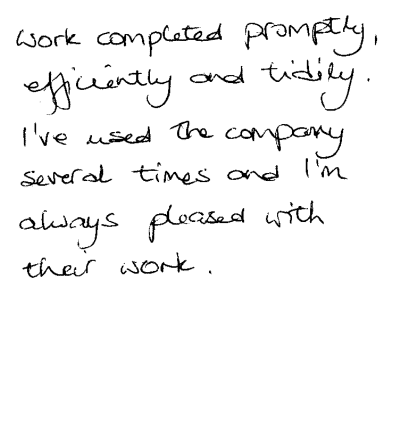 Work completed promptly,
efficiently and tidily.
I've used the company
several times and I'm
always pleased with
their work.